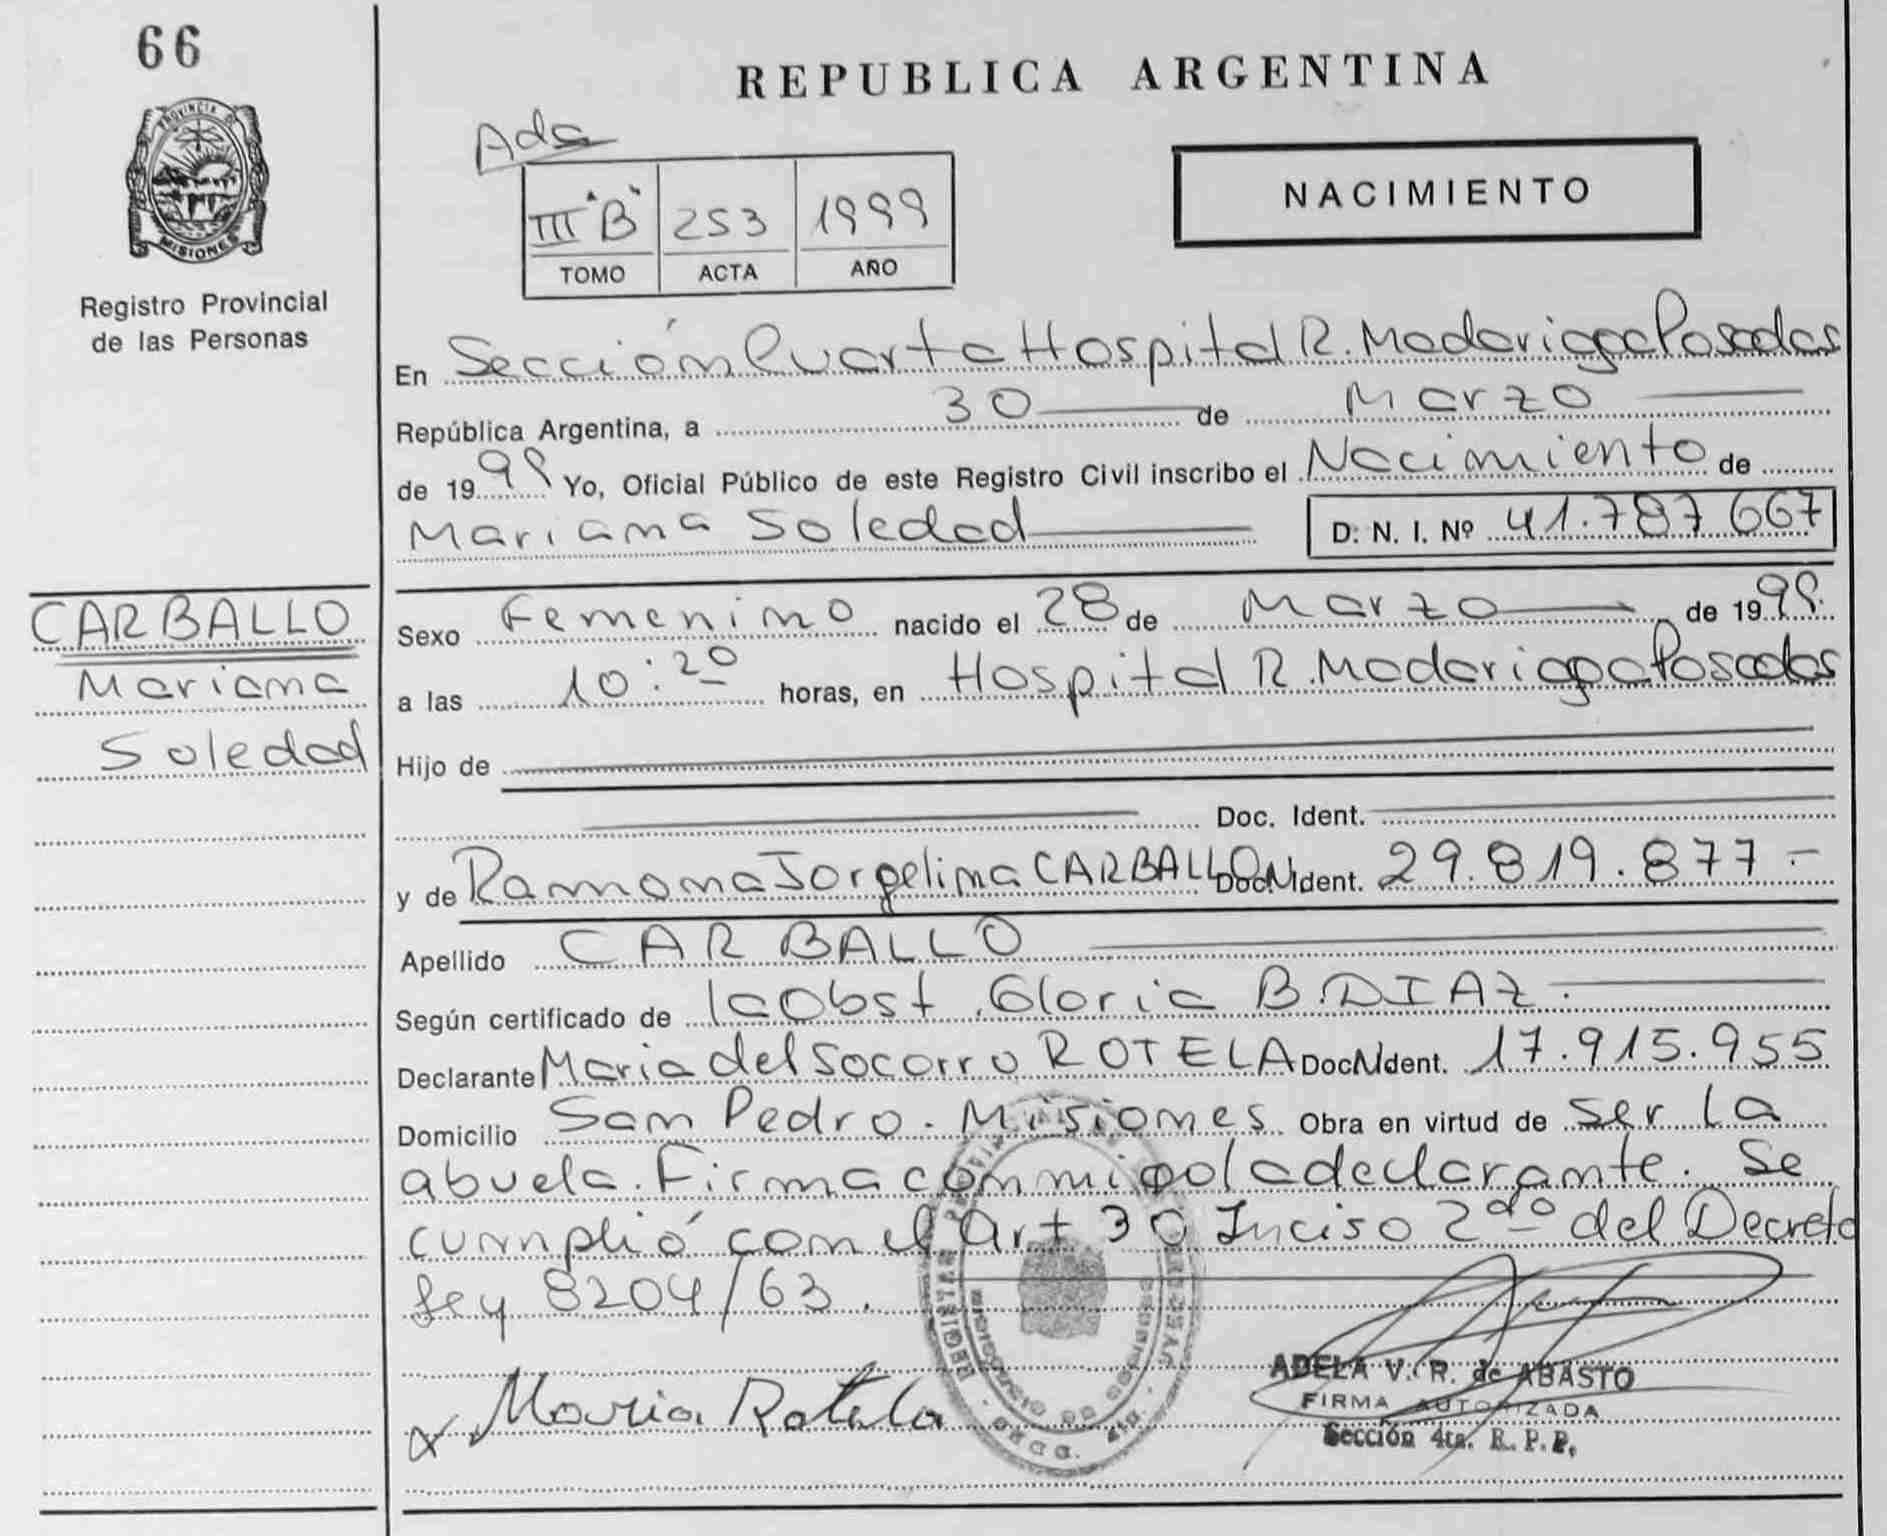 66
PROVINCIA DE
MISIONES
Registro Provincial
de las Personas
REPUBLICA ARGENTINA
Ads
III "B" 253 1999
TOMO ACTA AÑO
NACIMIENTO
En Sección Cuarta Hospital R. Madariaga Posadas
República Argentina, a 30 de Marzo
de 1999 Yo, Oficial Público de este Registro Civil inscribo el Nacimiento de
Mariana Soledad D. N. I. Nº 41.787.667
CARBALLO
Mariana
Soledad
Sexo Femenino nacido el 28 de Marzo de 1999.
a las 10:20 horas, en Hospital R. Madariaga Posadas
Hijo de
Doc. Ident.
y de Ramona Jorgelina CARBALLO DocN Ident. 29.819.877.-
Apellido CARBALLO
Según certificado de la Obst. Gloria B. DIAZ.
Declarante Maria del Socorro ROTELA DocN Ident. 17.915.955
Domicilio San Pedro. Misiones Obra en virtud de ser la
abuela. Firma conmigo la declarante. Se
cumplió con el Art 30 Inciso 2do del Decreto
Ley 8204/63.
Maria Rotela
ADELA V. R. de ABASTO
FIRMA AUTORIZADA
Sección 4ta. R. P. P.